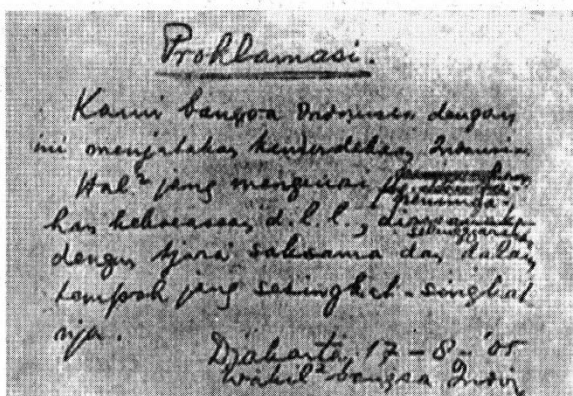 Proklamasi.
Kami bangsa Indonesia dengan
ini menjatakan kemerdekaan Indonesia.
Hal² jang mengenai
kan kekoeasaan d.l.l., diselenggarakan
dengan tjara saksama dan dalam
tempoh jang sesingkat-singkat
nja.
Djakarta, 17 - 8 - '05
Wakil² bangsa Indonesia